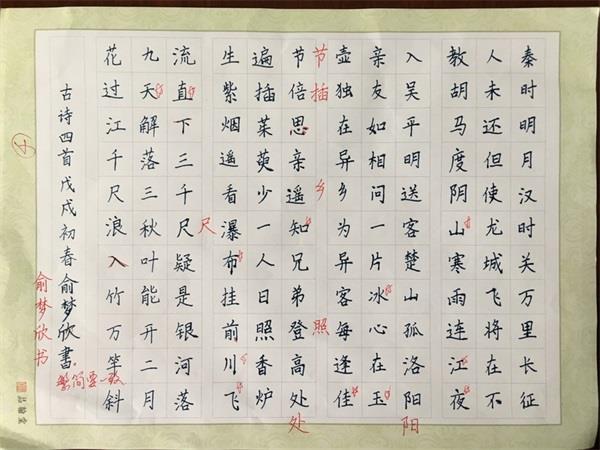 秦时明月汉时关万里长征
人未还但使龙城飞将在不
教胡马度阴山寒雨连江夜
入吴平明送客楚山孤洛阳
阳
亲友如相问一片冰心在玉
壶独在异乡为异客每逢佳
节插乡照处
节倍思亲遥知兄弟登高处
遍插茱萸少一人日照香炉
生紫烟遥看瀑布挂前川飞
尺
流直下三千尺疑是银河落
九天解落三秋叶能开二月
花过江千尺浪入竹万竿斜
古诗四首戊戌初春俞梦欣書
繁简要一致
俞梦欣书
品翰堂